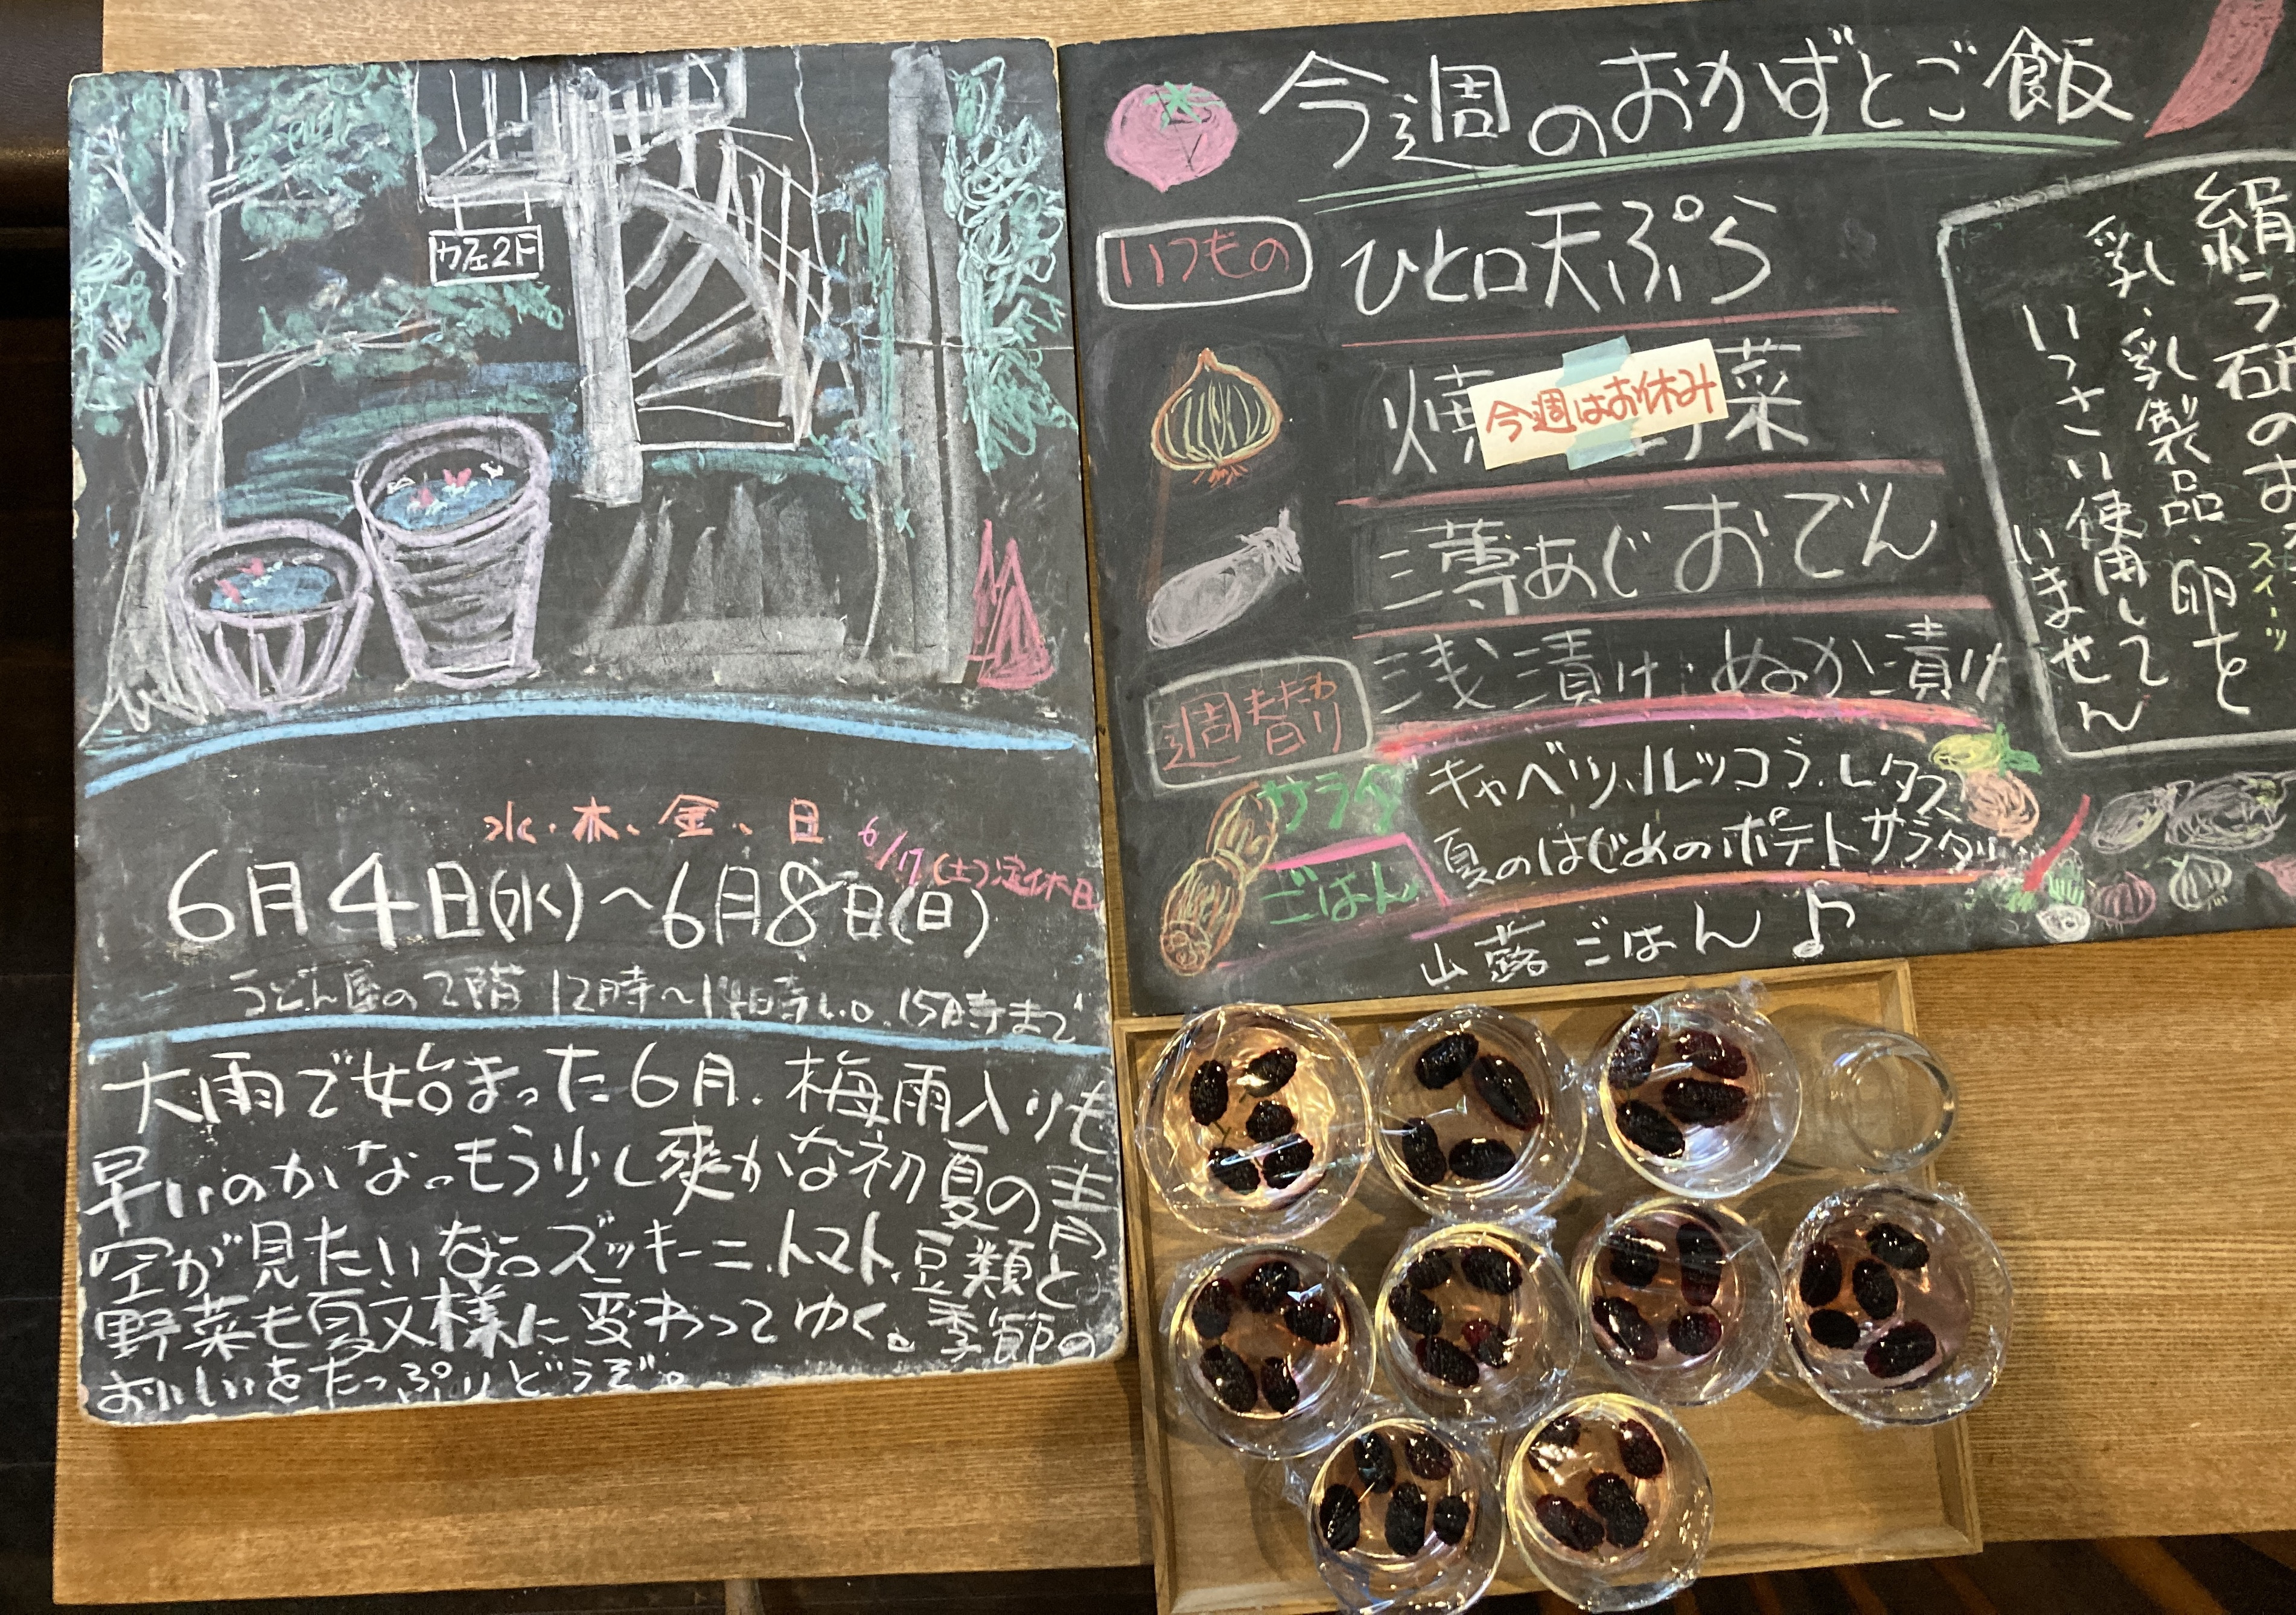 カフェ2F
水・木、金、日
6/17(土)定休日
6月4日(水)〜6月8日(日)
うどん屋の2階 12時〜14時L.O. 15時まで
大雨で始まった6月. 梅雨入りも
早いのかな。もう少し爽かな初夏の青
空が見たいな。ズッキーニ、トマト、豆類と
野菜も夏文様に変わってゆく。季節の
おいしいをたっぷりどうぞ。
今週のおかずとご飯
いつもの
ひと口天ぷら
焼 菜
今週はお休み
薄あじおでん
浅漬け・ぬか漬け
週替り
サラダ
キャベツ、ルッコラ、レタス
夏のはじめのポテトサラダ
ごはん
山蕗ごはん♪
スイーツ
乳・乳製品・卵を
いっさい使用して
いません